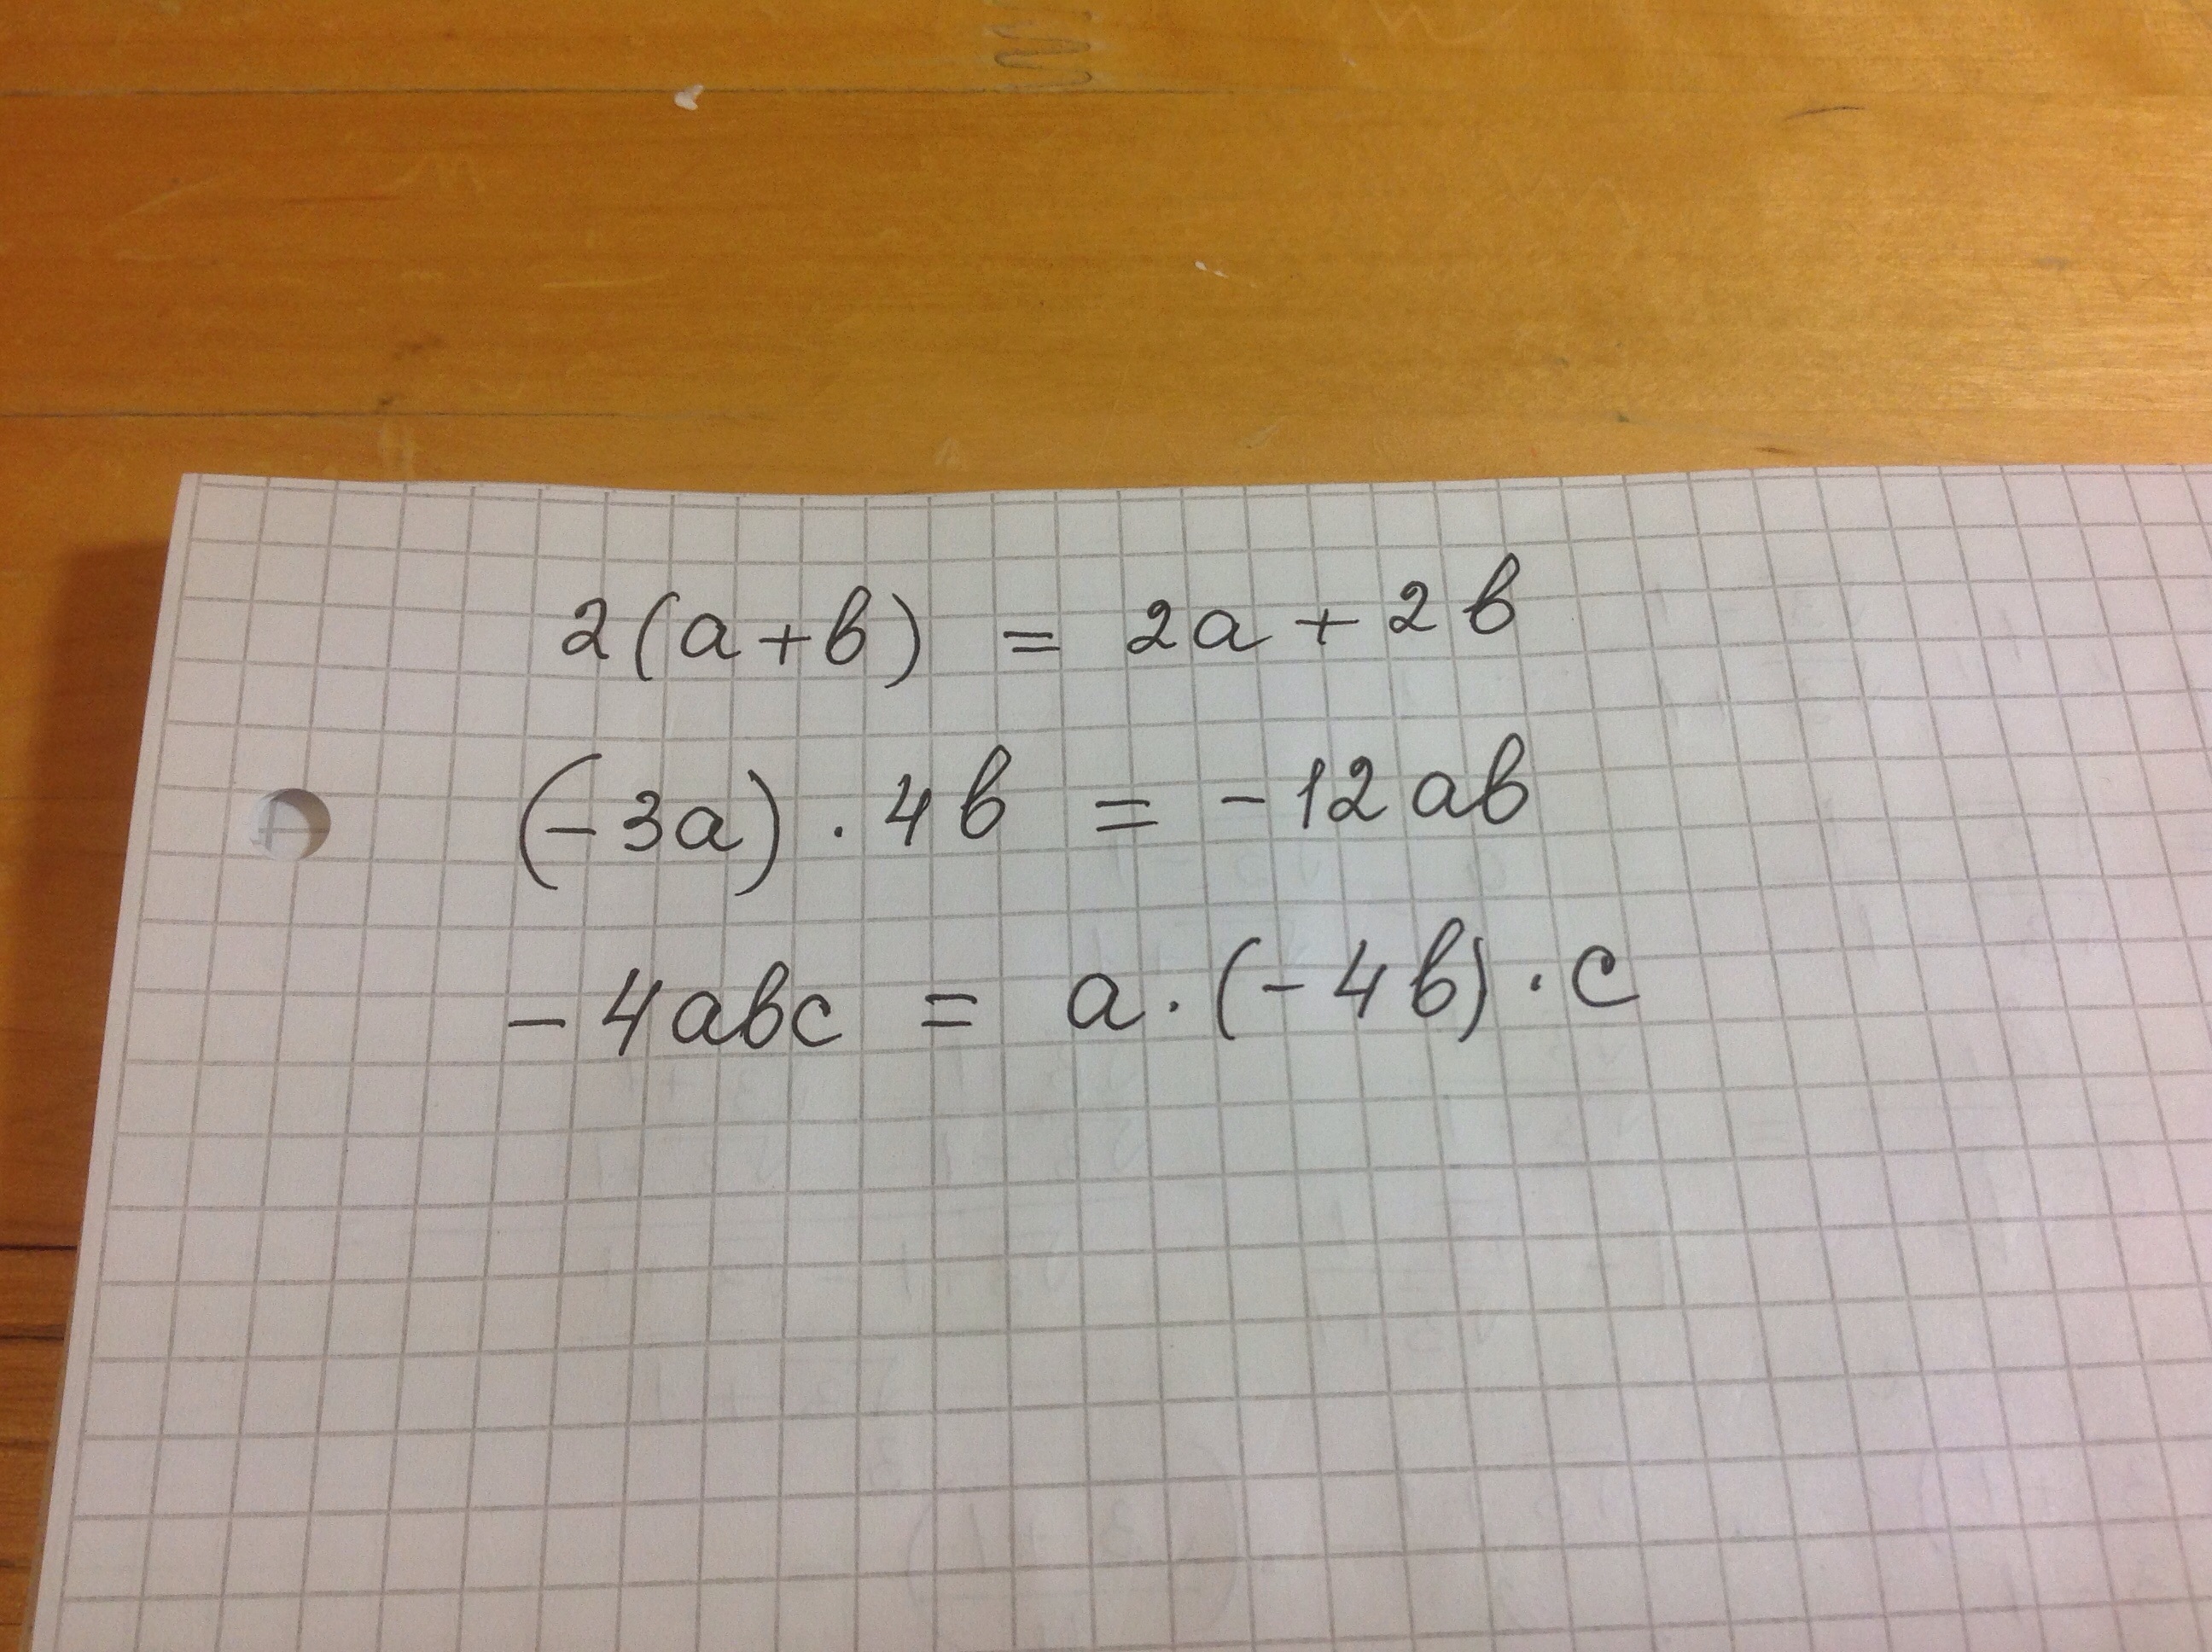 2(a+b) = 2a + 2b
(-3a) · 4b = -12ab
-4abc = a · (-4b) · c